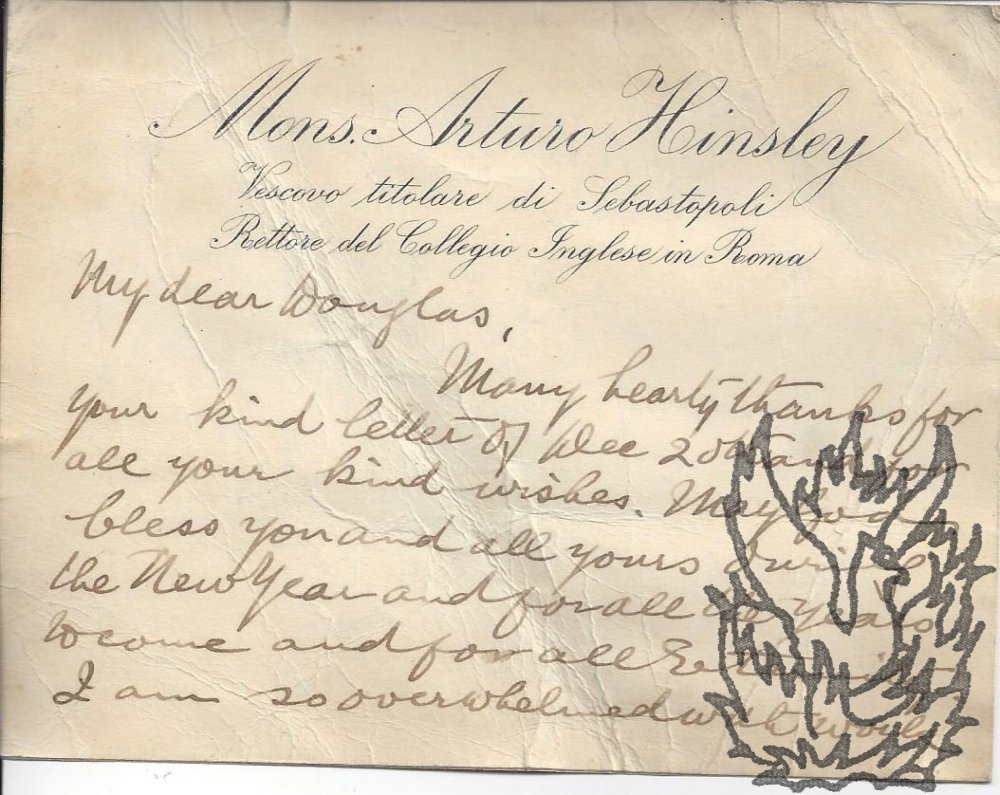 Mons. Arturo Hinsley
Vescovo titolare di Sebastopoli
Rettore del Collegio Inglese in Roma
My dear Douglas,
Many hearty thanks for
your kind letter of Dec 20th and for
all your kind wishes. May God
bless you and all yours during
the New Year and for all the years
to come and for all Eternity
I am so overwhelmed with work